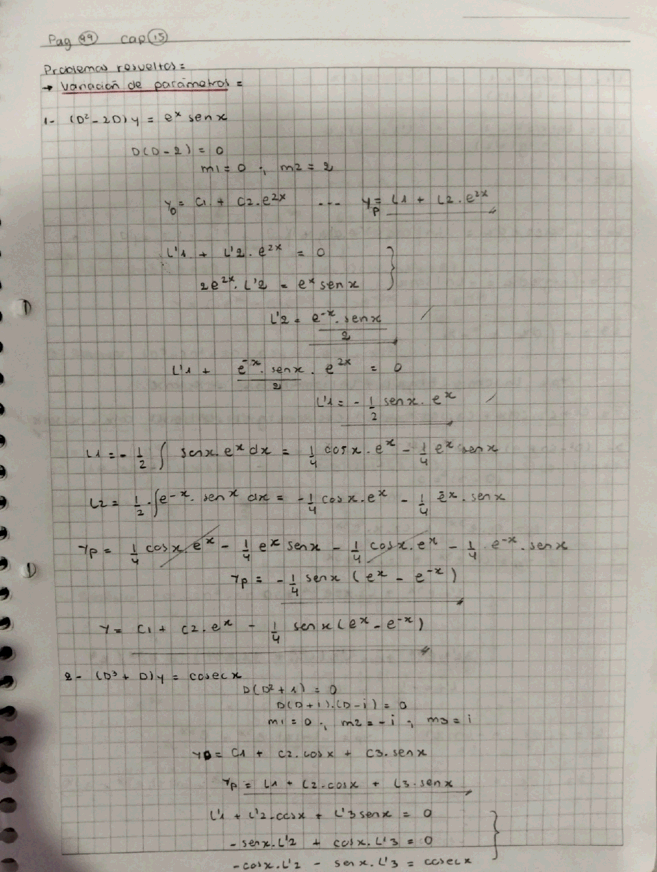 Pag 99 cap 15
Problemas resueltos =
→ Variación de parámetros =
1- (D² - 2D) y = eˣ sen x
D(D - 2) = 0
m1 = 0 ; m2 = 2
y₀ = C1 + C2.e²ˣ ... yp = L1 + L2.e²ˣ
L'1 + L'2.e²ˣ = 0
2e²ˣ.L'2 = eˣ sen x
L'2 = e⁻ˣ. sen x / 2
L'1 + e⁻ˣ. sen x / 2 . e²ˣ = 0
L'1 = - 1/2 sen x . eˣ
L1 = - 1/2 ∫ sen x. eˣ dx = 1/4 cos x . eˣ - 1/4 eˣ sen x
L2 = 1/2 . ∫ e⁻ˣ. sen x dx = - 1/4 cos x . eˣ - 1/4 eˣ. sen x
yp = 1/4 cos x. eˣ - 1/4 eˣ sen x - 1/4 cos x. eˣ - 1/4 e⁻ˣ . sen x
yp = - 1/4 sen x (eˣ - e⁻ˣ)
y = C1 + C2. eˣ - 1/4 sen x (eˣ - e⁻ˣ)
2- (D³ + D) y = cosec x
D(D² + 1) = 0
D(D + i).(D - i) = 0
m1 = 0 ; m2 = -i ; m3 = i
y₀ = C1 + C2. cos x + C3. sen x
yp = L1 + L2. cos x + L3. sen x
L'1 + L'2. cos x + L'3 sen x = 0
- sen x. L'2 + cos x. L'3 = 0
- cos x. L'2 - sen x. L'3 = cosec x